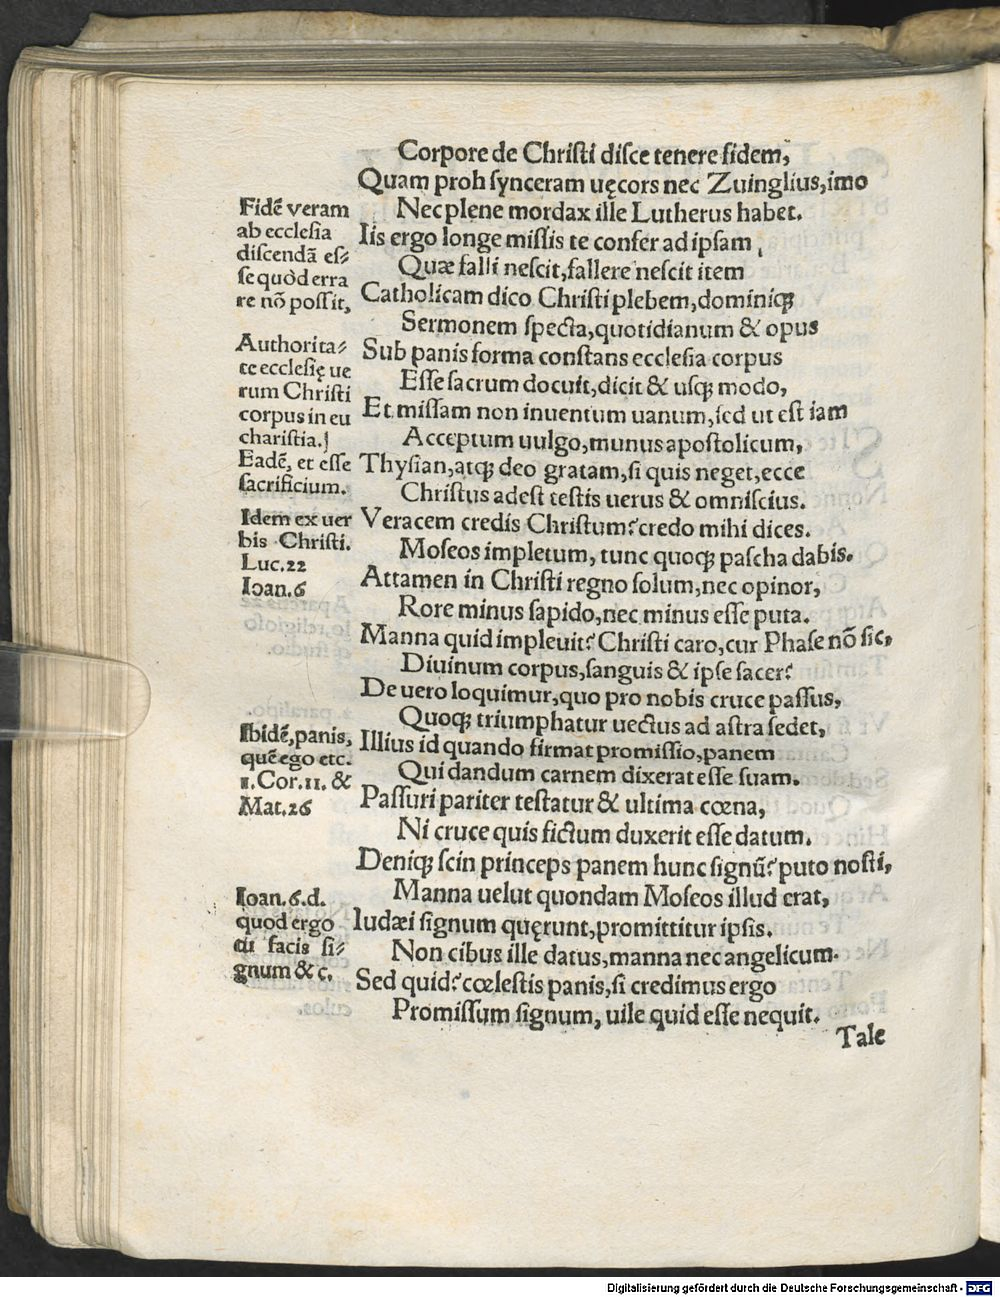 Corpore de Christi disce tenere fidem,
Quam proh synceram uęcors nec Zuinglius, imo
Nec plene mordax ille Lutherus habet.
Iis ergo longe missis te confer ad ipsam,
Quæ falli nescit, fallere nescit item
Catholicam dico Christi plebem, dominiqꝫ
Sermonem specta, quotidianum & opus
Sub panis forma constans ecclesia corpus
Esse sacrum docuit, dicit & usqꝫ modo,
Et missam non inuentum uanum, sed ut est iam
Acceptum uulgo, munus apostolicum,
Thysian, atqꝫ deo gratam, si quis neget, ecce
Christus adest testis uerus & omniscius.
Veracem credis Christum? credo mihi dices.
Moseos impletum, tunc quoqꝫ pascha dabis.
Attamen in Christi regno solum, nec opinor,
Rore minus sapido, nec minus esse puta.
Manna quid impleuit? Christi caro, cur Phase nõ sic,
Diuinum corpus, sanguis & ipse sacer?
De uero loquimur, quo pro nobis cruce passus,
Quoqꝫ triumphatur uectus ad astra sedet,
Illius id quando firmat promissio, panem
Qui dandum carnem dixerat esse suam.
Passuri pariter testatur & ultima cœna,
Ni cruce quis fictum duxerit esse datum.
Deniqꝫ scin princeps panem hunc signũ? puto nosti,
Manna uelut quondam Moseos illud erat,
Iudæi signum quęrunt, promittitur ipsis.
Non cibus ille datus, manna nec angelicum.
Sed quid? cœlestis panis, si credimus ergo
Promissum signum, uile quid esse nequit.
Tale
Fidẽ veram
ab ecclesia
discendã es⸗
se quòd erra
re nõ possit,
Authorita⸗
te ecclesię ue
rum Christi
corpus in eu
charistia.
Eadẽ, et esse
sacrificium.
Idem ex uer
bis Christi.
Luc. 22
Ioan. 6
Ibidẽ, panis,
quẽ ego etc.
1. Cor. 11. &
Mat. 26
Ioan. 6. d.
quod ergo
tu facis si⸗
gnum & c.
Digitalisierung gefördert durch die Deutsche Forschungsgemeinschaft - DFG